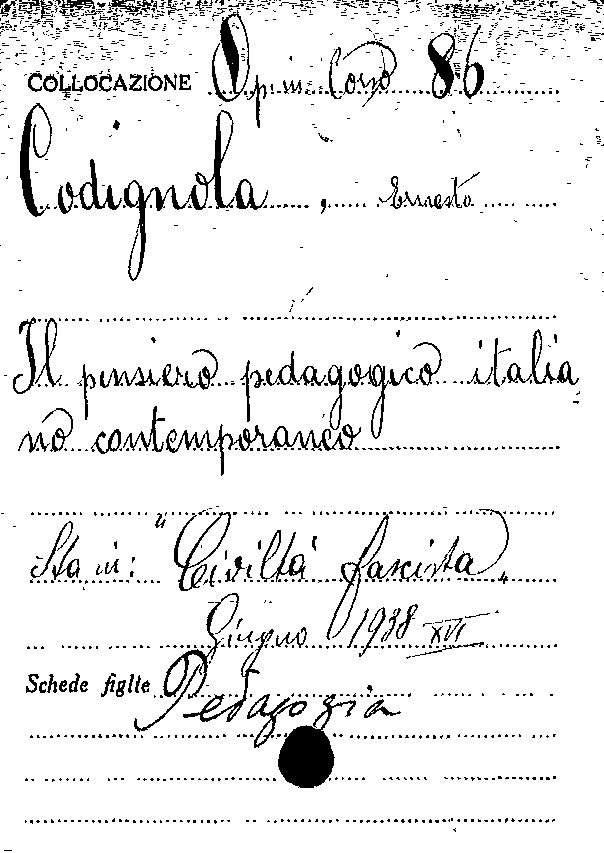 COLLOCAZIONE Op. in. Cons 86
Codignola, Ernesto
Il pensiero pedagogico italia
no contemporaneo
Sta in: "Civiltà fascista„
Giugno 1938 XVI
Schede figlie Pedagogia